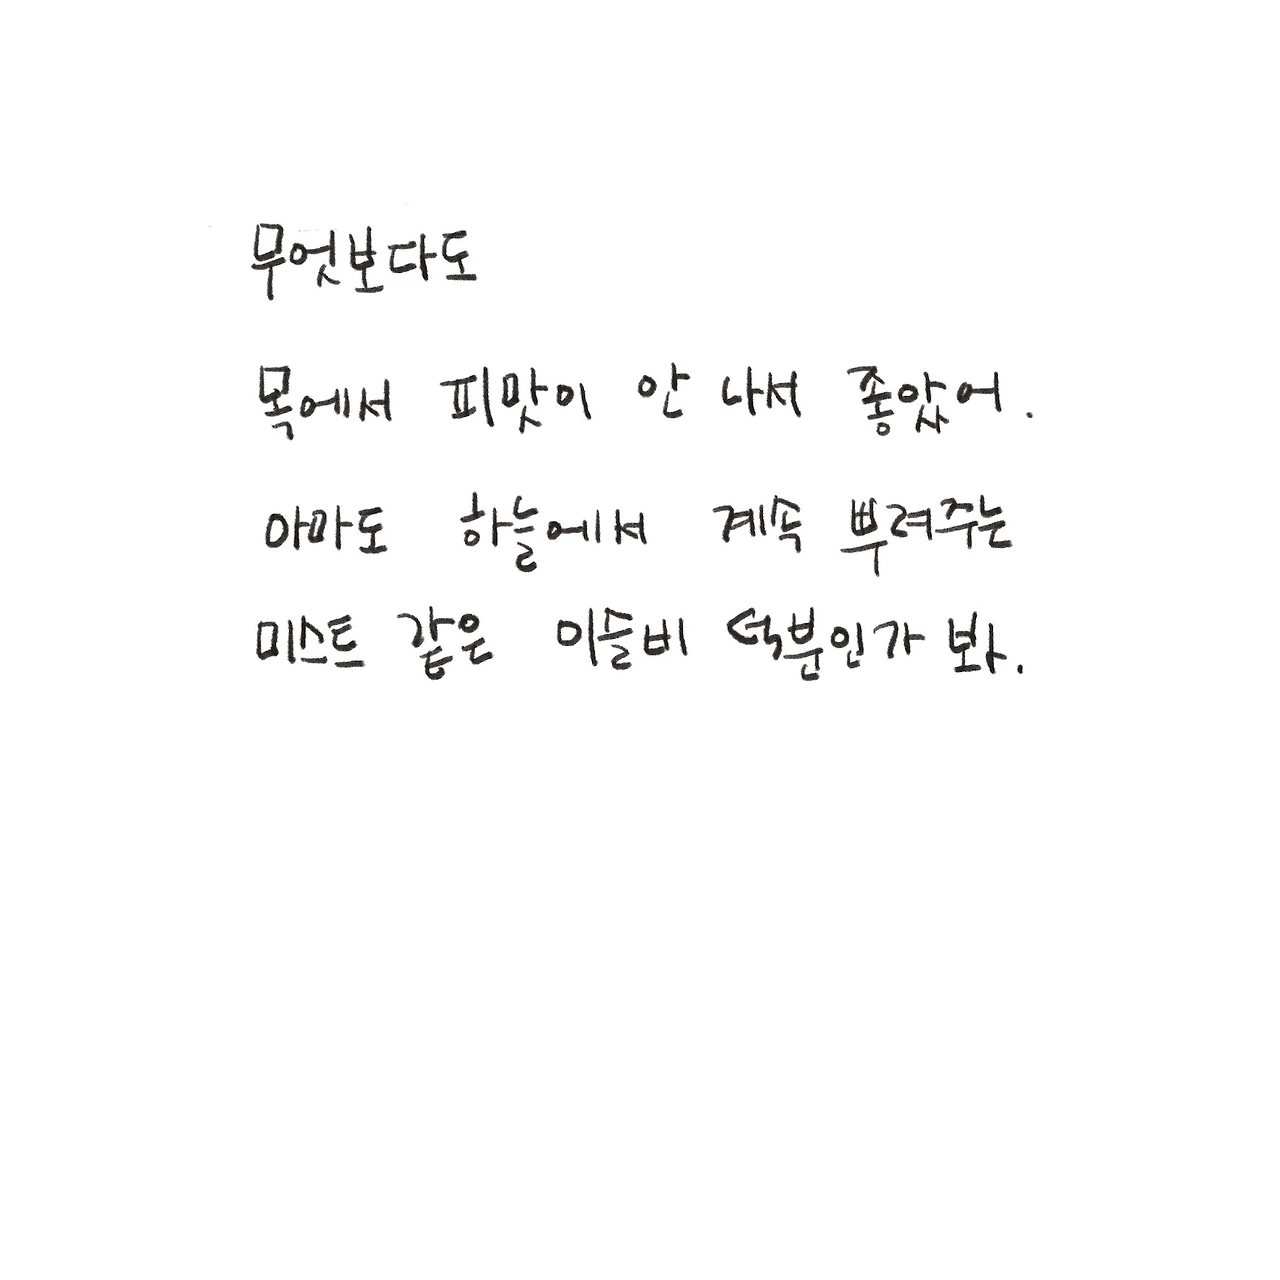 무엇보다도
목에서 피맛이 안 나서 좋았어.
아마도 하늘에서 계속 뿌려주는
미스트 같은 이슬비 덕분인가 봐.